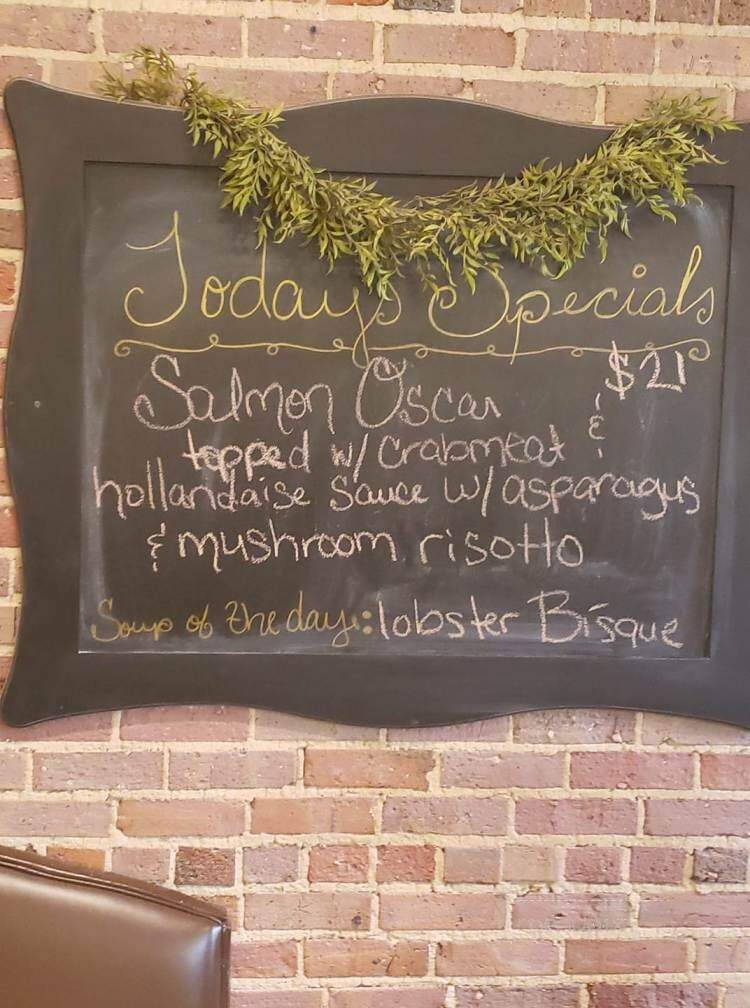 Today's Specials
Salmon Oscar $21
topped w/ crabmeat &
hollandaise sauce w/ asparagus
& mushroom risotto
Soup of the day: lobster Bisque